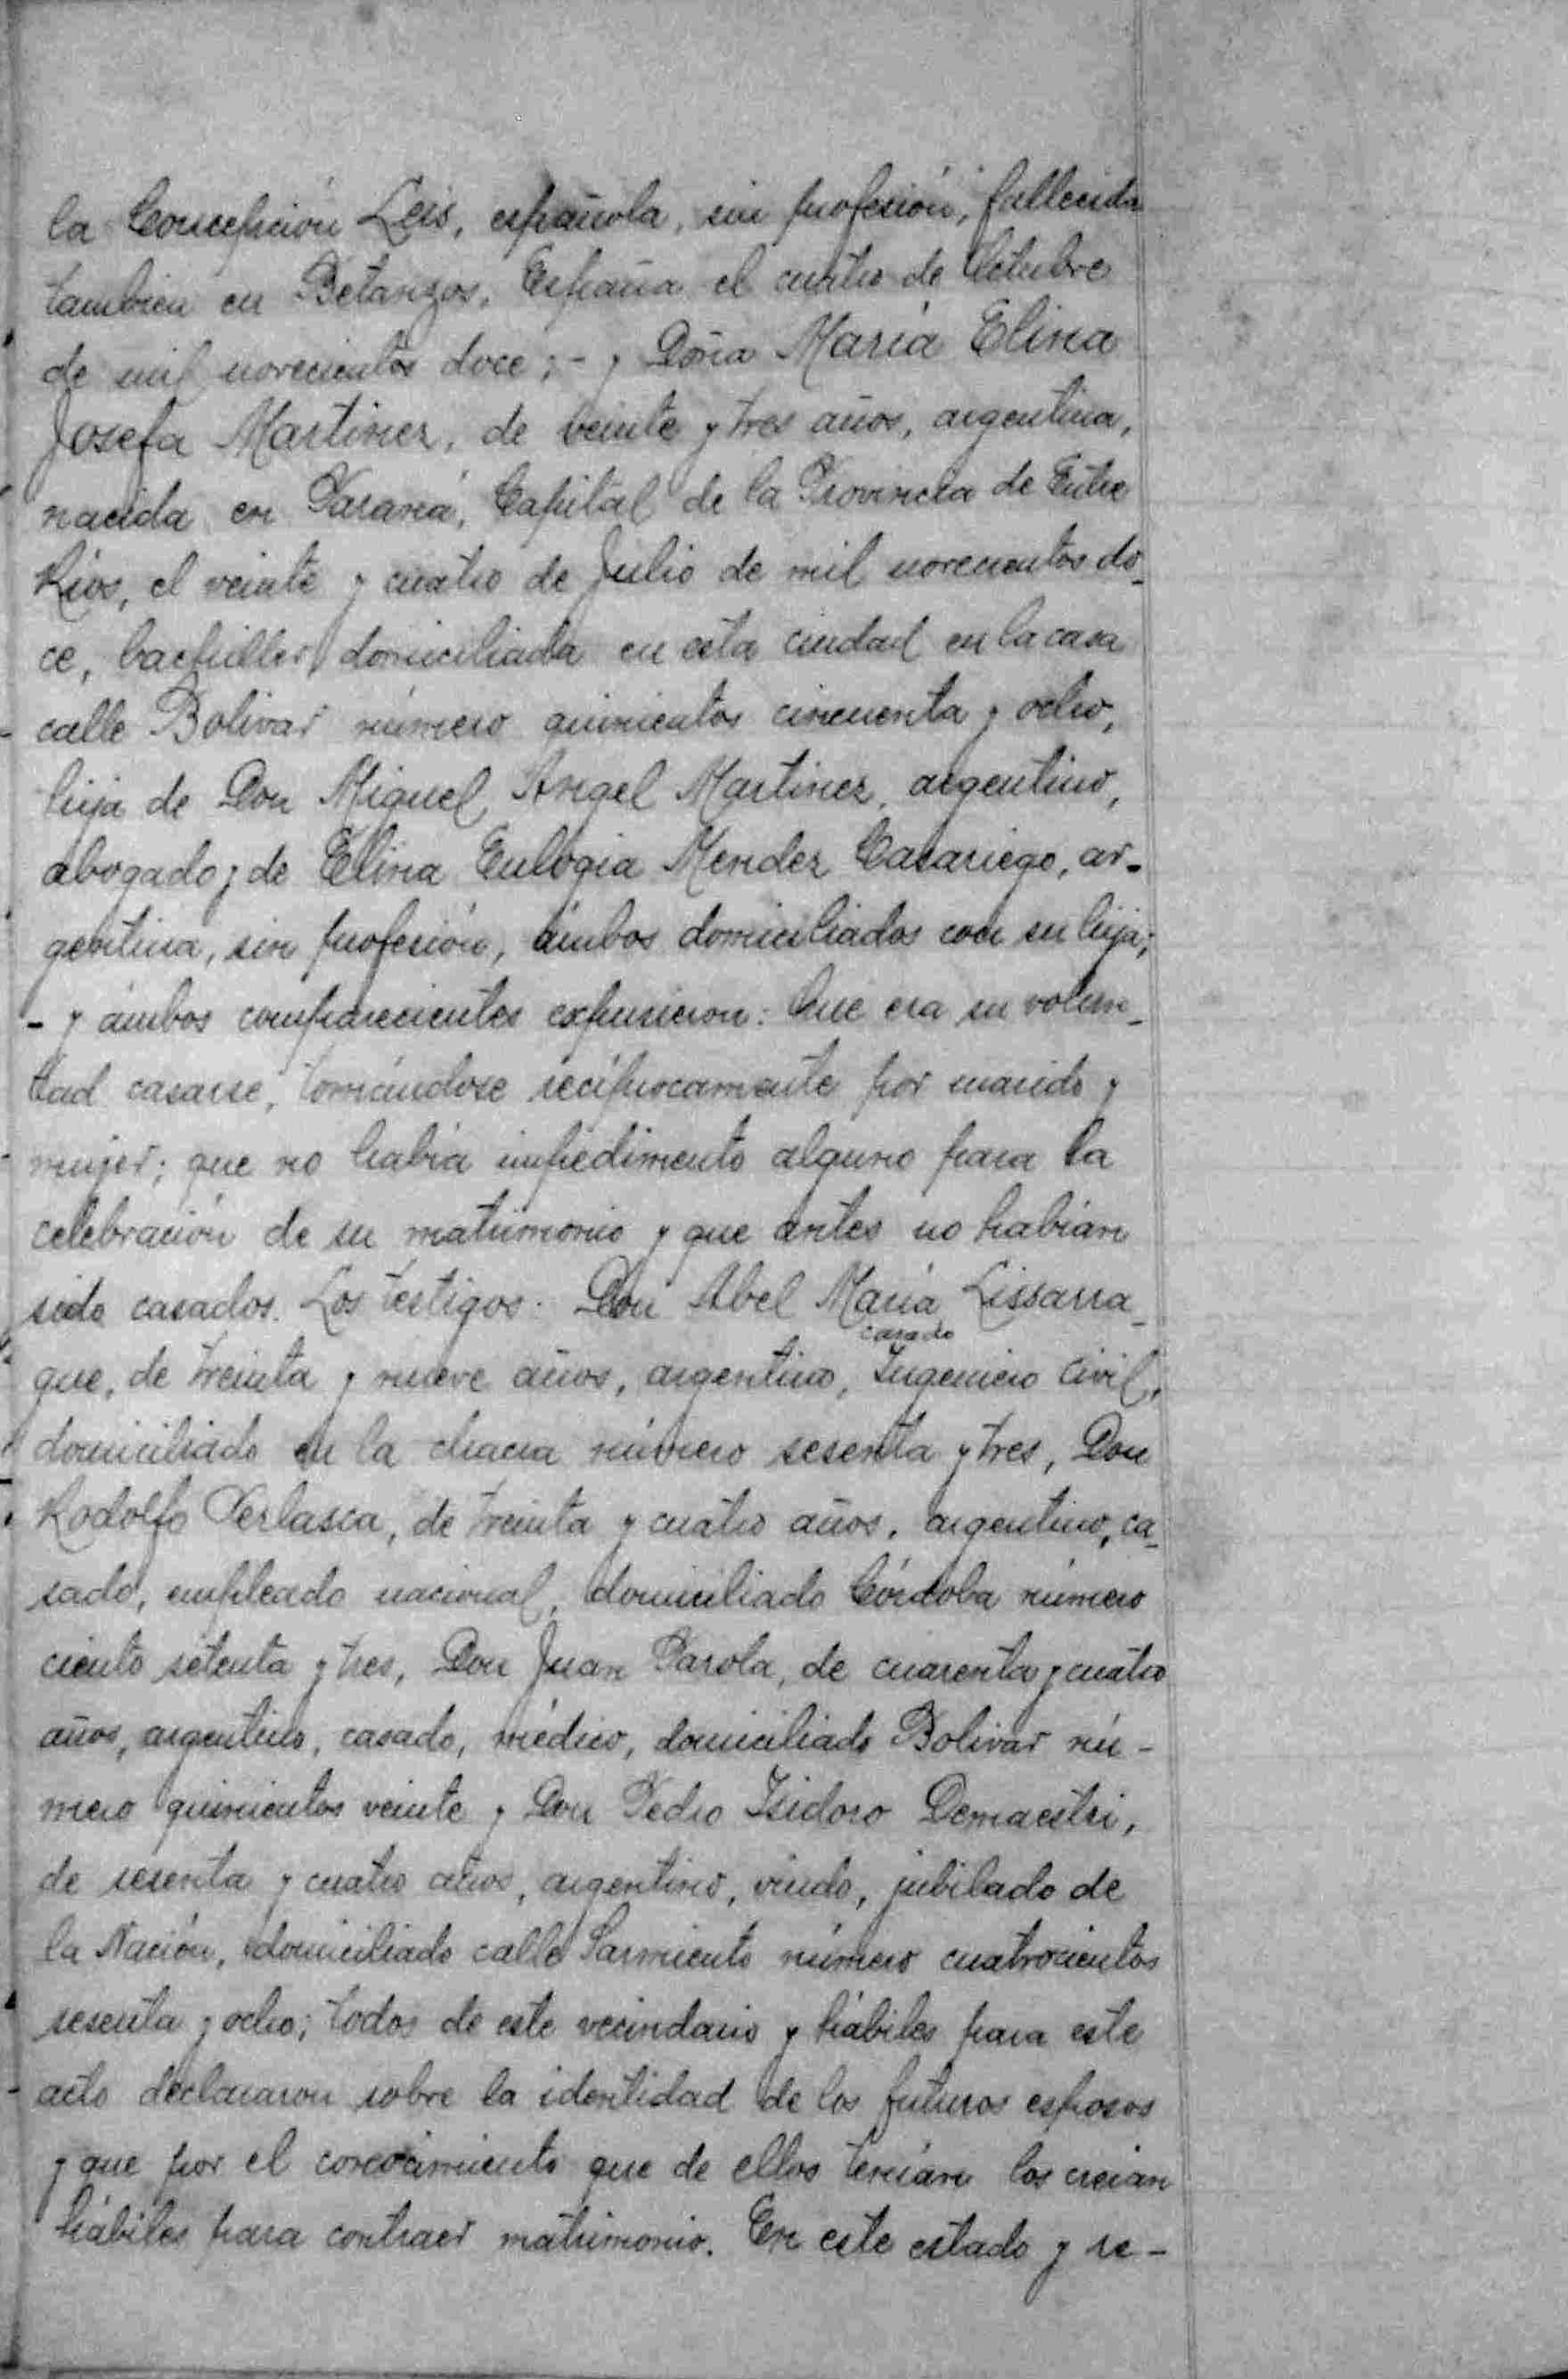 la Concepción Leis, española, sin profesión, fallecida
tambien en Betanzos, España el cuatro de Octubre
de mil novecientos doce; - y Doña María Elina
Josefa Martinez, de veinte y tres años, argentina,
nacida en Paraná, Capital de la Provincia de Entre
Ríos, el veinte y cuatro de Julio de mil novecientos do_
ce, bachiller, domiciliada en esta ciudad en la casa
calle Bolivar número quinientos cincuenta y ocho,
hija de Don Miguel Angel Martinez, argentino,
abogado y de Elina Eulogia Mendez Casariego, ar-
gentina, sin profesión, ámbos domiciliados con su hija;
- y ámbos comparecientes expusieron: Que era su volun_
tad casarse, tomándose recíprocamente por marido y
mujer; que no había impedimento alguno para la
celebración de su matrimonio y que antes no habían
sido casados. Los testigos: Don Abel María Lissarra_
casado
gue, de treinta y nueve años, argentino, Ingeniero Civil,
domiciliado en la chacra número sesenta y tres, Don
Rodolfo Perlasca, de treinta y cuatro años, argentino, ca_
sado, empleado nacional, domiciliado Córdoba número
ciento setenta y tres, Don Juan Parola, de cuarenta y cuatro
años, argentino, casado, médico, domiciliado Bolivar nú-
mero quinientos veinte y Don Pedro Isidoro Demaestri,
de sesenta y cuatro años, argentino, viudo, jubilado de
la Nación, domiciliado calle Sarmiento número cuatrocientos
sesenta y ocho; todos de este vecindario y hábiles para este
acto declararon sobre la identidad de los futuros esposos
y que por el conocimiento que de ellos tenían los creían
hábiles para contraer matrimonio. En este estado y re-